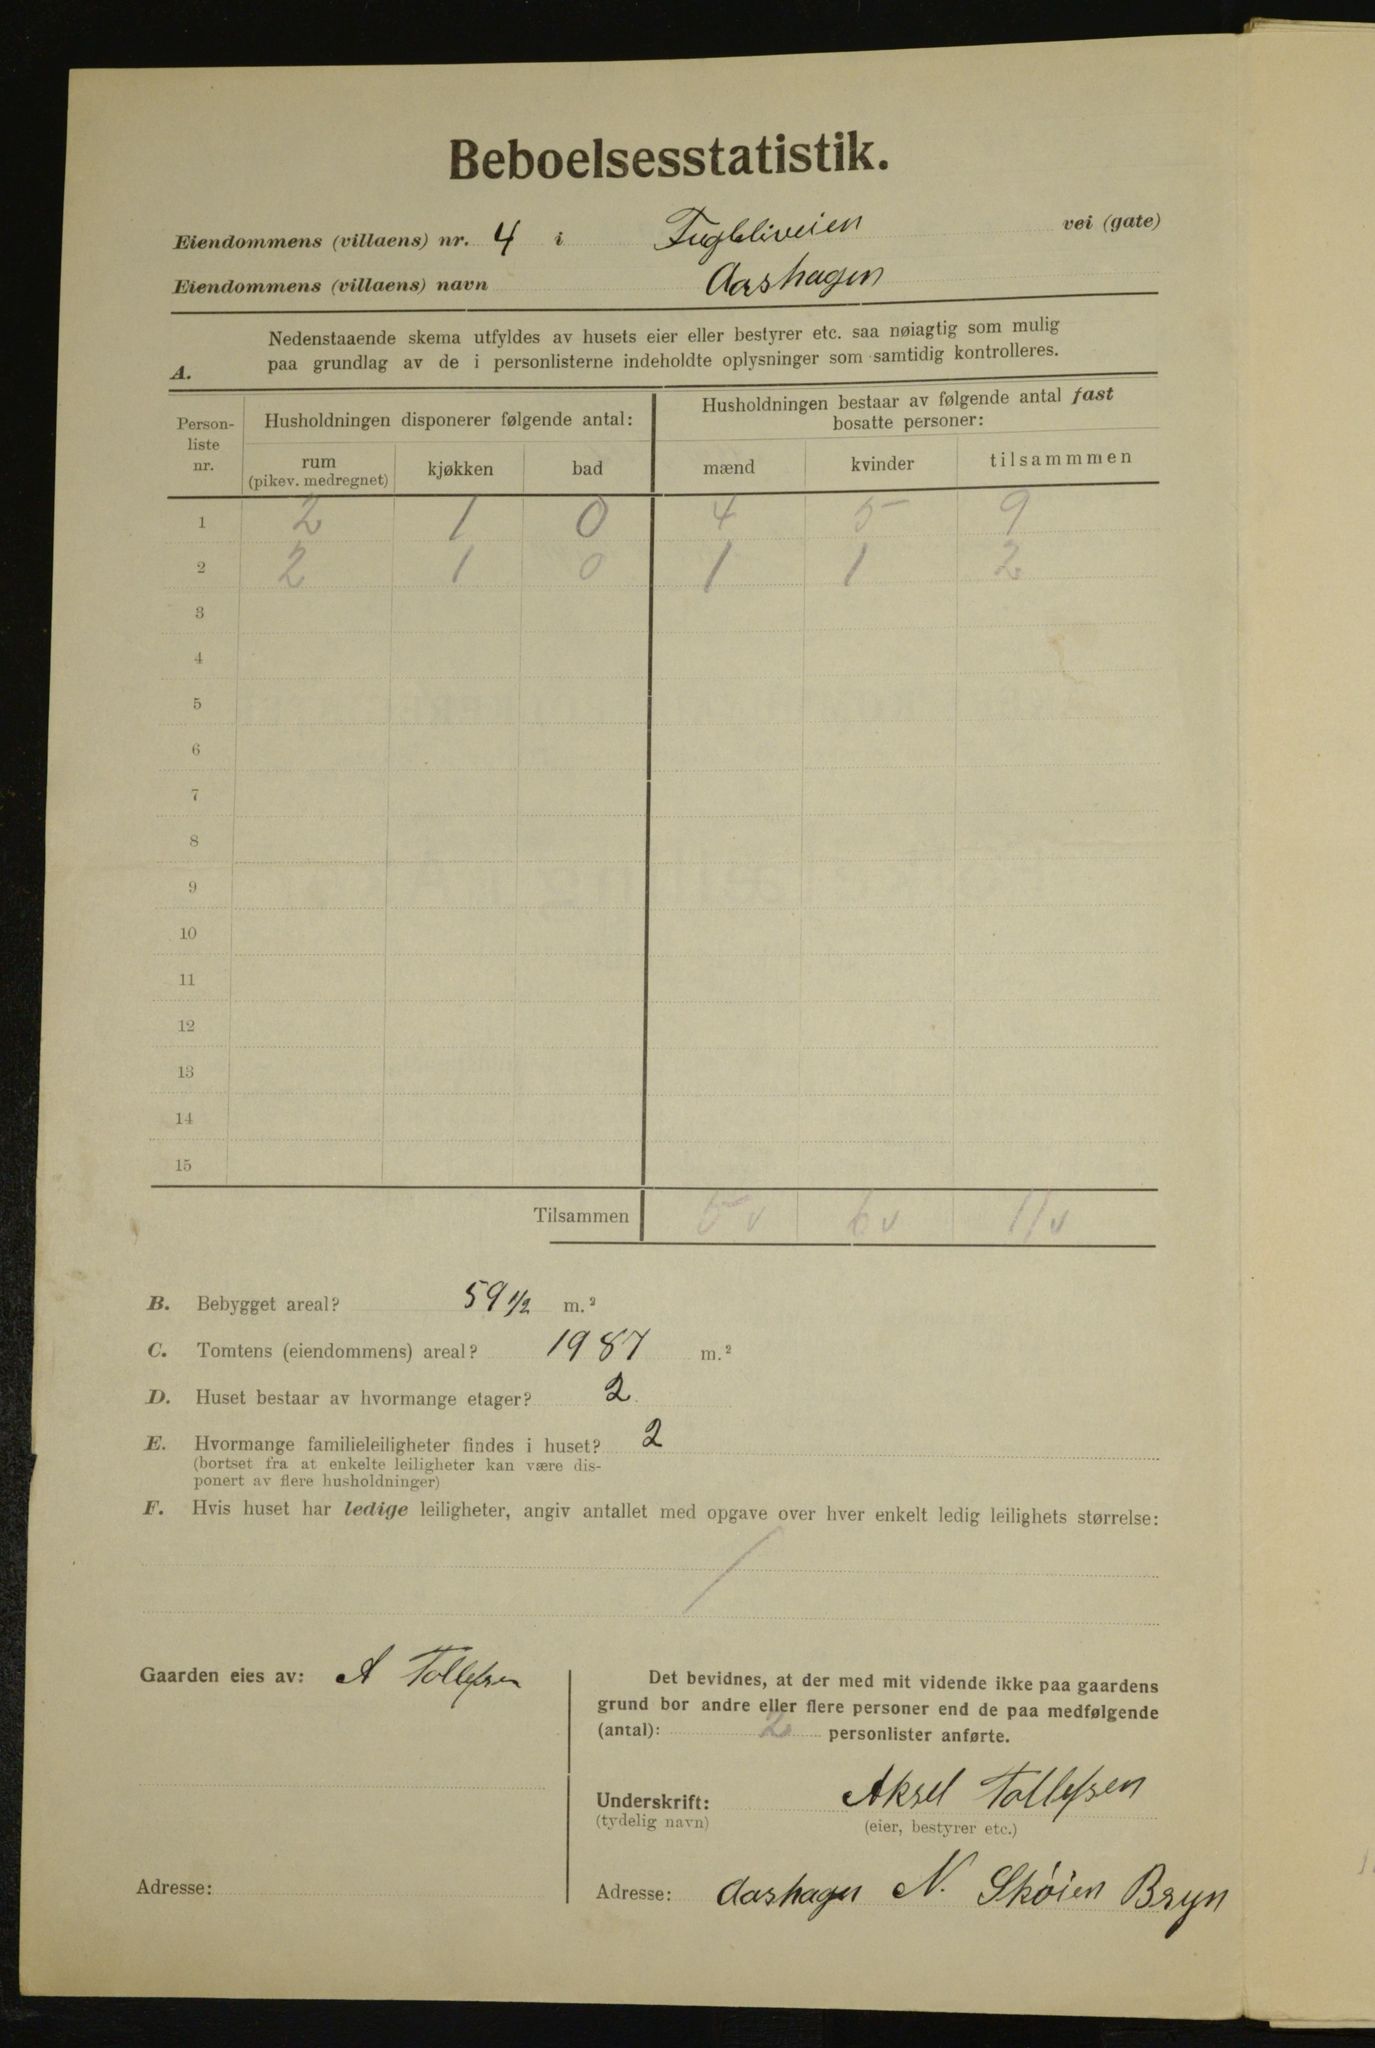 Beboelsesstatistik.
Eiendommens (villaens) nr. 4 i Fugleliveien vei (gate)
Eiendommens (villaens) navn Aashagen
Nedenstaaende skema utfyldes av husets eier eller bestyrer etc. saa nøiagtig som mulig
A. paa grundlag av de i personlisterne indeholdte oplysninger som samtidig kontrolleres.
Person-liste nr. Husholdningen disponerer følgende antal: Husholdningen bestaar av følgende antal fast bosatte personer:
rum (pikev. medregnet) kjøkken bad mænd kvinder tilsammmen
1 2 1 0 4 5 9
2 2 1 0 1 1 2
3
4
5
6
7
8
9
10
11
12
13
14
15
Tilsammen 5 v 6 v 11 v
B. Bebygget areal? 59 1/2 m.²
C. Tomtens (eiendommens) areal? 1987 m.²
D. Huset bestaar av hvormange etager? 2
E. Hvormange familieleiligheter findes i huset? 2
(bortset fra at enkelte leiligheter kan være dis-
ponert av flere husholdninger)
F. Hvis huset har ledige leiligheter, angiv antallet med opgave over hver enkelt ledig leilighets størrelse:
/
Gaarden eies av: A Tollefsen
Adresse:
Det bevidnes, at der med mit vidende ikke paa gaardens
grund bor andre eller flere personer end de paa medfølgende
(antal): 2 personlister anførte.
Underskrift: Aksel Tollefsen
(tydelig navn) (eier, bestyrer etc.)
Adresse: Aashagen N. Skøien Bryn